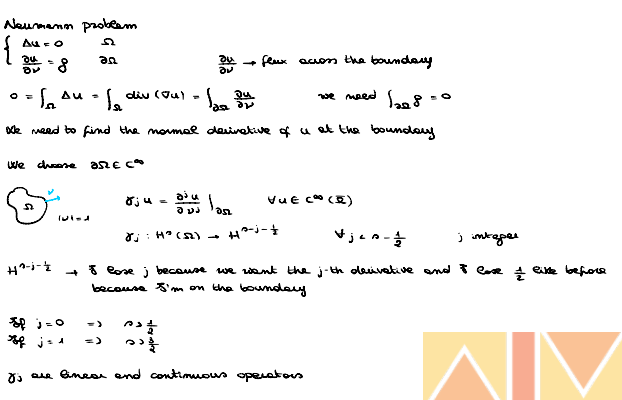 Neumann problem
{ Δu = 0 Ω
∂u/∂ν = g ∂Ω ∂u/∂ν → flux across the boundary
0 = ∫_Ω Δu = ∫_Ω div (∇u) = ∫_∂Ω ∂u/∂ν we need ∫_∂Ω g = 0
We need to find the normal derivative of u at the boundary
We choose ∂Ω ∈ C^∞
ν
Ω
|ν| = 1
γ_j u = ∂^j u/∂ν^j |_∂Ω ∀ u ∈ C^∞(Ω̅)
γ_j : H^s(Ω) → H^{s-j-1/2} ∀ j < s - 1/2 j integer
H^{s-j-1/2} → I lose j because we want the j-th derivative and I lose 1/2 like before
because I'm on the boundary
If j = 0 => s > 1/2
If j = 1 => s > 3/2
γ_j are linear and continuous operators